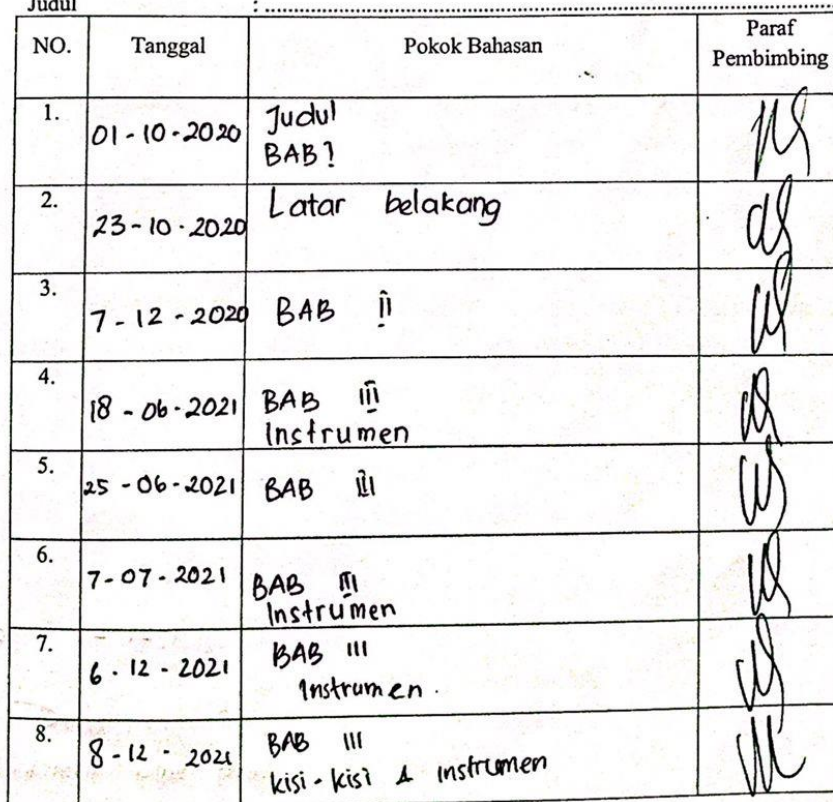 Judul : ........................................................
NO. Tanggal Pokok Bahasan Paraf Pembimbing
1. 01-10-2020 Judul
BAB I
2. 23-10-2020 Latar belakang
3. 7-12-2020 BAB II
4. 18-06-2021 BAB III
Instrumen
5. 25-06-2021 BAB III
6. 7-07-2021 BAB III
Instrumen
7. 6-12-2021 BAB III
Instrumen.
8. 8-12-2021 BAB III
kisi-kisi & instrumen